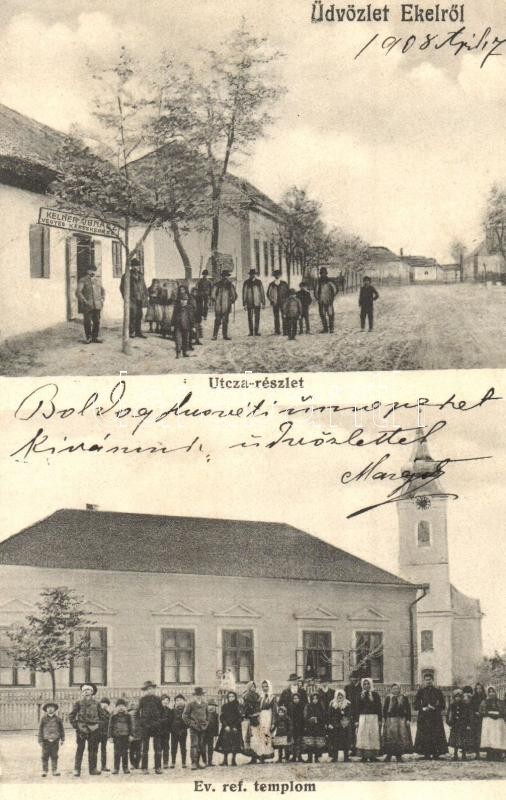 Üdvözlet Ekelről
1908 April 17
KELNER IGNÁCZ
VEGYES KERESKEDÉSE
Utcza-részlet
Boldog husvéti ünnepeket
Kivánunk, üdvözlettel
Margit
Ev. ref. templom